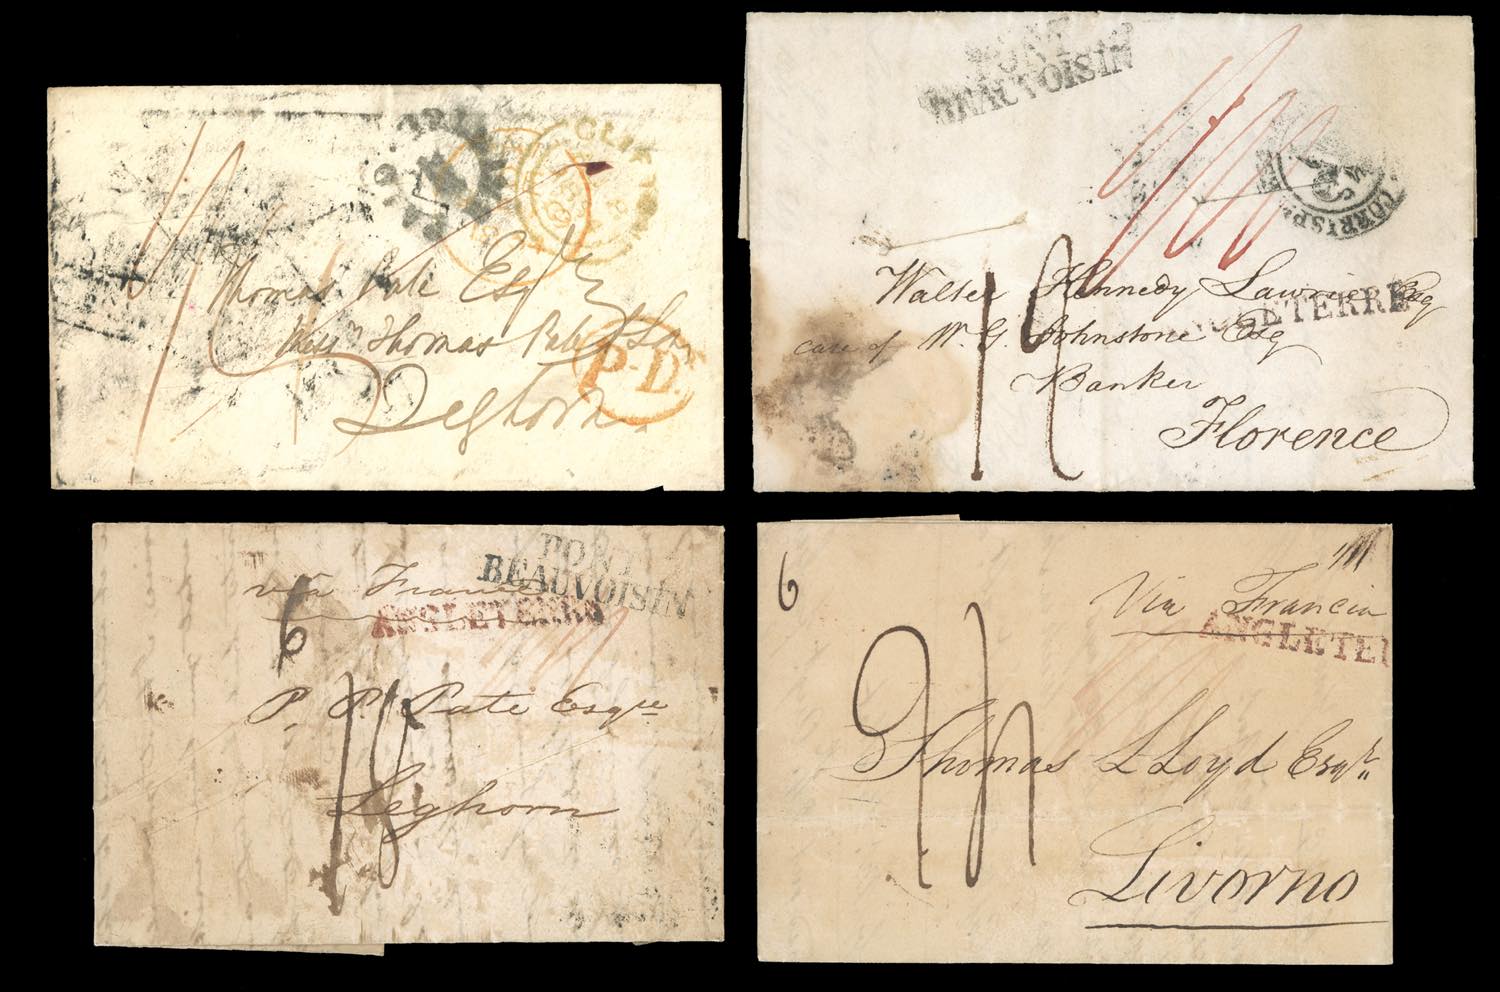 CLIF
Thomas Pate Esqr
Thomas Pate & Son
Leghorn
P.D.
PONT
BEAUVOISIN
CORRISP
Walter Kennedy Lawrie Esq
ANGLETERRE
care of W. G. Johnstone Esq
Banker
Florence
PONT
BEAUVOISIN
via France
ANGLETERRE
6
P. P. Pate Esqre
18
Leghorn
6
Via Francia
ANGLETER
24
Thomas LLoyd Esqr.
Livorno